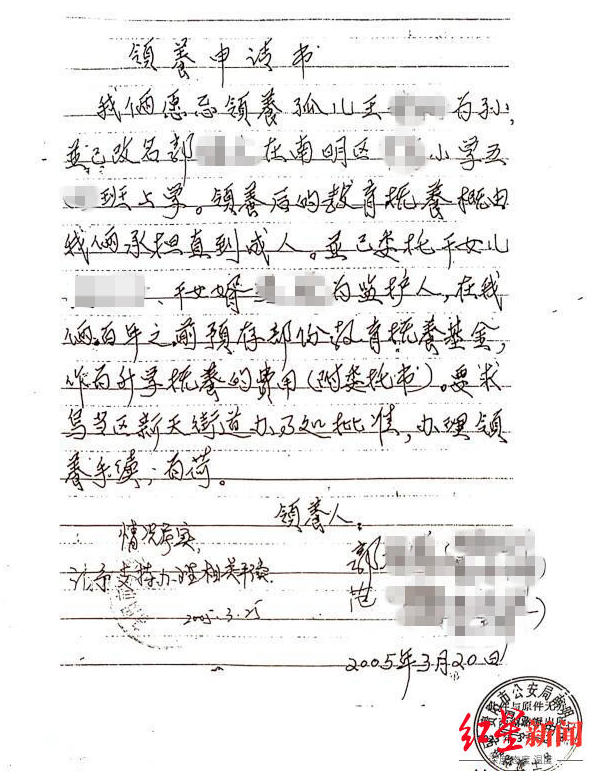 领养申请书
我俩愿意领养孤儿王 为孙,
並已改名郭 在南明区 小学五
班上学。领养后的教育抚养概由
我俩承担直到成人。並已委托干女儿
、干女婿 为监护人,在我
俩百年之前预存部份教育抚养基金,
作为升学抚养的费用(附委托书)。要求
乌当区新天街道办事处批准,办理领
养手续,为荷。
领养人:
情况属实,
郭
请予支持办理相关手续
范
2005.3.25
2005年3月20日
阳市公安局南明
件与原件无
红星新闻